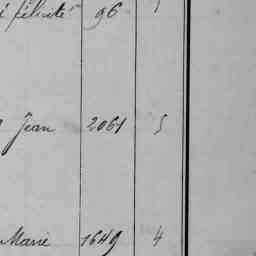 félicité 96 1
Jean 2061 5
Marie 1649 4